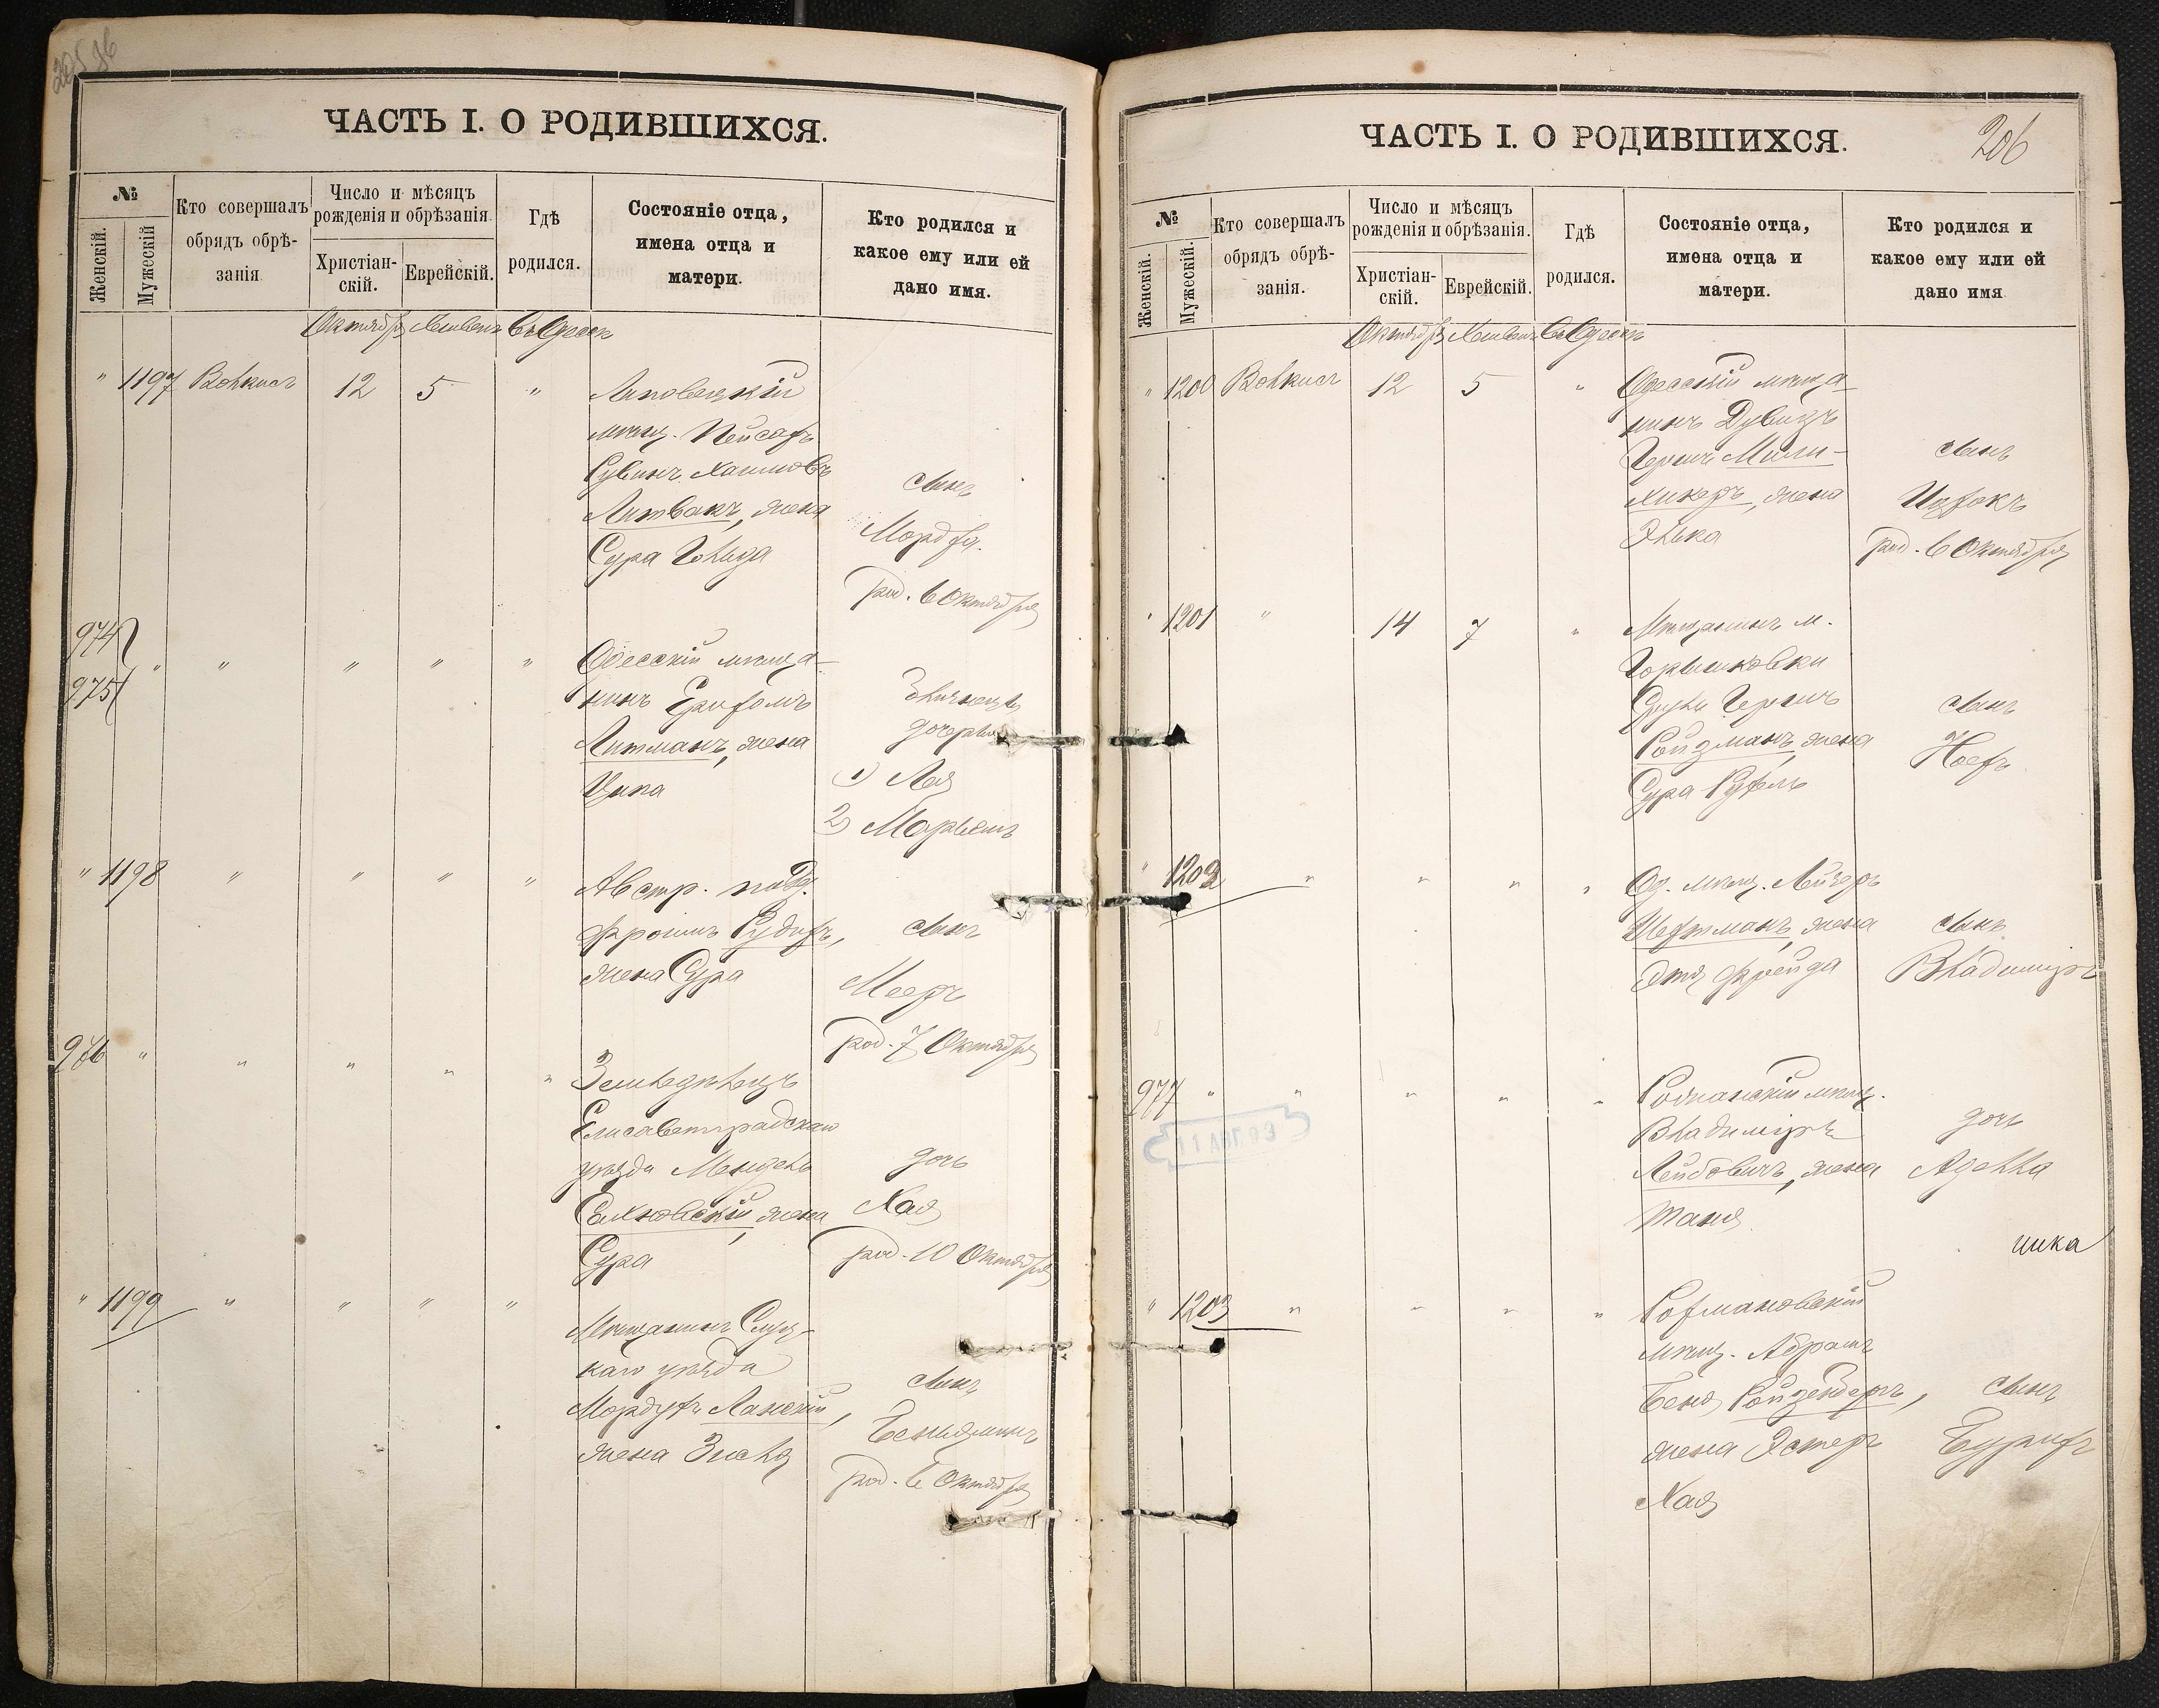 ЧАСТЬ I. О РОДИВШИХСЯ.
№
Женскій.
Мужескій
Кто совершалъ
обрядъ обрѣ-
занія
Число и мѣсяцъ
рожденія и обрѣзанія.
Христіан-
скій.
Еврейскій.
Гдѣ
родился.
Состояніе отца,
имена отца и
матери.
Кто родился и
какое ему или ей
дано имя.
Октябрь Хешвенъ Въ Одессѣ
" 1197 Велкисъ 12 5 "
Липовецкій
мѣщ. Пейсахъ
Рувинъ Хаимовъ
Литвакъ, жена
Сура Голда
сынъ
Мордхе.
род. 6 Октября
974
975 " " " " "
Одесскій мѣща-
нинъ Ерухомъ
Литманъ, жена
Ципа
Близнецы
дочери
1) Лея
2) Марьемъ
" 1198 " " " "
Австр. подд.
Фроимъ
жена Сура
сынъ
Мееръ
род. 7 Октября
976 " " " " "
Земледѣлецъ
Елисаветградскаго
уѣзда Мендель
жена
Сура
дочь
Хая
род. 10 Октября
" 1199 " " " "
Мѣщанинъ Слуц-
каго уѣзда
Мордухъ Ланскій,
жена Зисля
сынъ
Беньяминъ
род. 6 Октября
ЧАСТЬ I. О РОДИВШИХСЯ.
206
№
Женскій.
Мужескій.
Кто совершалъ
обрядъ обрѣ-
занія.
Число и мѣсяцъ
рожденія и обрѣзанія.
Христіан-
скій.
Еврейскій.
Гдѣ
родился.
Состояніе отца,
имена отца и
матери.
Кто родился и
какое ему или ей
дано имя
Октябрь Хешвенъ Въ Одессѣ
" 1200 Велкисъ 12 5 "
Одесскій мѣща-
нинъ Дувидъ
Гершъ Мили-
жена
Элька
сынъ
Ицхокъ
род. 6 Октября
" 1201 " 14 7 "
Мѣщанинъ м.
Горышковки
Срулъ Гершъ
Ройзманъ, жена
Сура Рухель
сынъ
Ноехъ
" 1202 " " " "
Од. мѣщ. Лейзеръ
жена
Этя Фрейда
сынъ
Владиміръ
977 " " " " "
мѣщ.
Владиміръ
Лейбовичъ, жена
Таня
дочь
Аделла
11 АВГ. 93
" 1203 " " " "
Рохмановскій
мѣщ. Абрамъ
Беня Ройзенбергъ,
жена Эстеръ
Хая
сынъ
Бурихъ